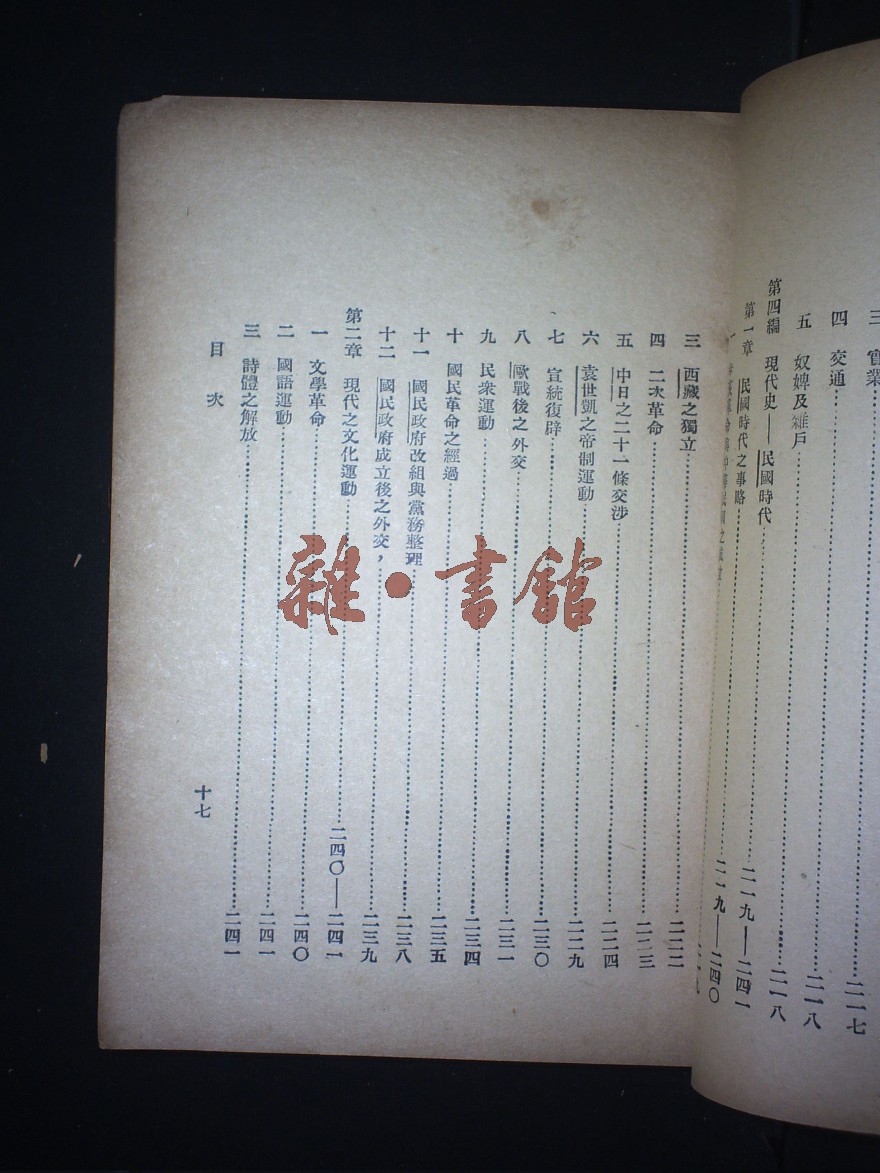 三 實業……二一七
四 交通……二一八
五 奴婢及雜戶……二一八
第四編 現代史——民國時代……二一九—二四一
第一章 民國時代之事略……二一九—二四〇
一
三 西藏之獨立……二二二
四 二次革命……二二三
五 中日之二十一條交涉……二二四
六 袁世凱之帝制運動……二二九
七 宣統復辟……二三〇
八 歐戰後之外交……二三一
九 民衆運動……二三四
十 國民革命之經過……二三五
十一 國民政府改組與黨務整理……二三八
十二 國民政府成立後之外交，……二三九
第二章 現代之文化運動……二四〇—二四一
一 文學革命……二四〇
二 國語運動……二四一
三 詩體之解放……二四一
目次
十七
雜·書館